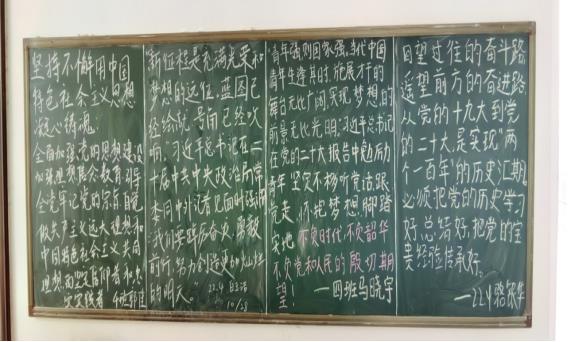 坚持不懈用中国
特色社会主义思想
凝心铸魂。
全面加强党的思想建设
加强理想信念教育
全党牢记党的宗旨
做共产主义远大理想和
中国特色社会主义共同
理想的坚定信仰者和忠
实实践者
"新征程是充满光荣和
梦想的远征,蓝图已
经绘就,号角已经吹
响。"习近平总书记在二
十届中共中央政治局常
委同中外记者见面时强调
"我们要踔厉奋发、勇毅
前行,努力创造更加灿烂
的明天。"
10/28
"青年强则国家强,当代中国
青年生逢其时,施展才干的
舞台无比广阔,实现梦想的
前景无比光明。"习近平总书记
在党的二十大报告中勉励
青年坚定不移听党话、跟
党走,怀抱梦想、脚踏
实地 不负时代 不负韶华
不负党和人民的殷切期
望!
——四班马晓宇
回望过往的奋斗路
遥望前方的奋进路,
从党的十九大到党
的二十大,是实现"两
个一百年"的历史汇期,
必须把党的历史学习
好、总结好,把党的宝
贵经验传承好。